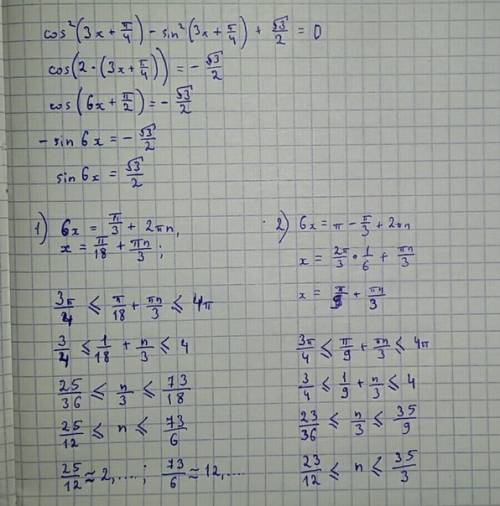 cos²(3x + π/4) - sin²(3x + π/4) + √3/2 = 0
cos(2·(3x + π/4)) = - √3/2
cos(6x + π/2) = - √3/2
- sin 6x = - √3/2
sin 6x = √3/2
1) 6x = π/3 + 2πn,
x = π/18 + πn/3;
3π/4 ⩽ π/18 + πn/3 ⩽ 4π
3/4 ⩽ 1/18 + n/3 ⩽ 4
25/36 ⩽ n/3 ⩽ 73/18
25/12 ⩽ n ⩽ 73/6
25/12 ≈ 2,....; 73/6 ≈ 12,....
2) 6x = π - π/3 + 2πn
x = 2π/3 · 1/6 + πn/3
x = π/9 + πn/3
3π/4 ⩽ π/9 + πn/3 ⩽ 4π
3/4 ⩽ 1/9 + n/3 ⩽ 4
23/36 ⩽ n/3 ⩽ 35/9
23/12 ⩽ n ⩽ 35/3